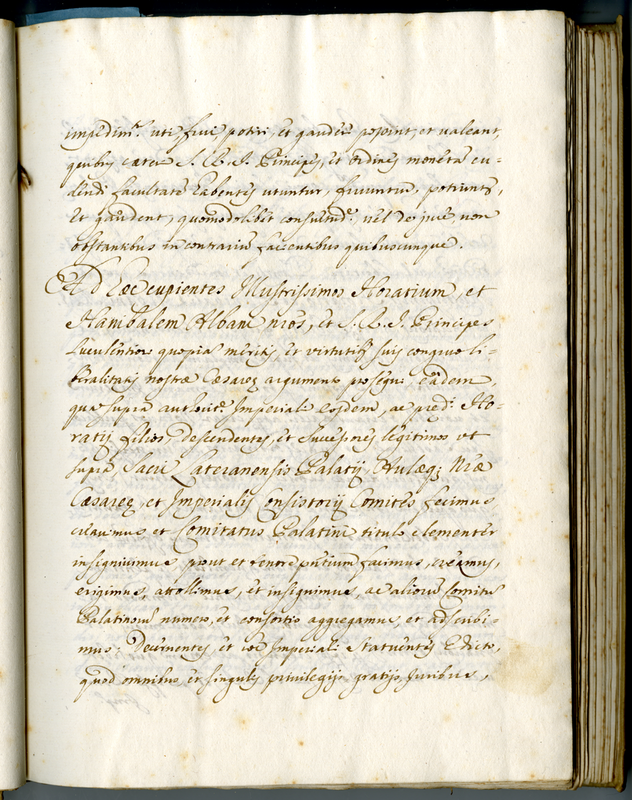 impedim.ᵗ uti frui potiri, et gaudere possint, et valeant,
quibus cæteri S. R. I. Principes, et ordines monetã cu-
dendi facultatẽ habentes utuntur, fruuntur, potiuntʳ,
et gaudent, quomodolibet consuetud.ᵉ vel de jure non
obstantibus in contrariũ facientibus quibuscunque.
Ad hoc cupientes Illustrissimos Horatium et
Hanibalem Albani nros, et S. R. I. Principes
luculentiori quopiã meritis, et virtutibꝰ suis congruo li-
beralitatis nostræ Cæsareæ argumento prosequi, eãdem,
qua supra authorit.ᵉ Imperiali eosdem, ac pred.ⁱ Ho-
ratij filios, descendentes, et successores legitimos ut
supra Sacri Lateranensis Palatij, Aulæq; Nræ
Cæsareæ, et Imperialis Consistorij Comites fecimus
creavimus et Comitatus Palatini titulo clementer
insignivimus, prout et tenore pñtium facimus, creamus,
erigimus, attollimus, et insignimus, ac aliorũ Comitũ
Palatinorũ numero, et consortio aggregamus, et adscribi-
mus: Decernentes et hoc Imperiali statuentes Edicto,
quod omnibus et singulis privilegijs gratijs Juribus,